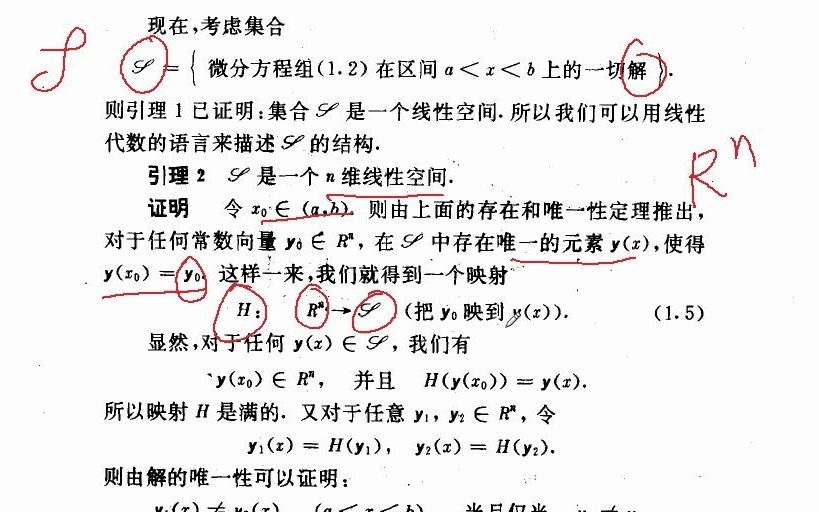 现在,考虑集合
𝒮 = { 微分方程组(1.2) 在区间 a < x < b 上的一切解 }.
则引理 1 已证明:集合 𝒮 是一个线性空间. 所以我们可以用线性
代数的语言来描述 𝒮 的结构.
R^n
引理 2 𝒮 是一个 n 维线性空间.
证明 令 x₀ ∈ (a,b). 则由上面的存在和唯一性定理推出,
对于任何常数向量 y₀ ∈ Rⁿ, 在 𝒮 中存在唯一的元素 y(x), 使得
y(x₀) = y₀. 这样一来,我们就得到一个映射
H: Rⁿ → 𝒮 (把 y₀ 映到 y(x)). (1.5)
显然,对于任何 y(x) ∈ 𝒮, 我们有
y(x₀) ∈ Rⁿ, 并且 H(y(x₀)) = y(x).
所以映射 H 是满的. 又对于任意 y₁, y₂ ∈ Rⁿ, 令
y₁(x) = H(y₁), y₂(x) = H(y₂).
则由解的唯一性可以证明: